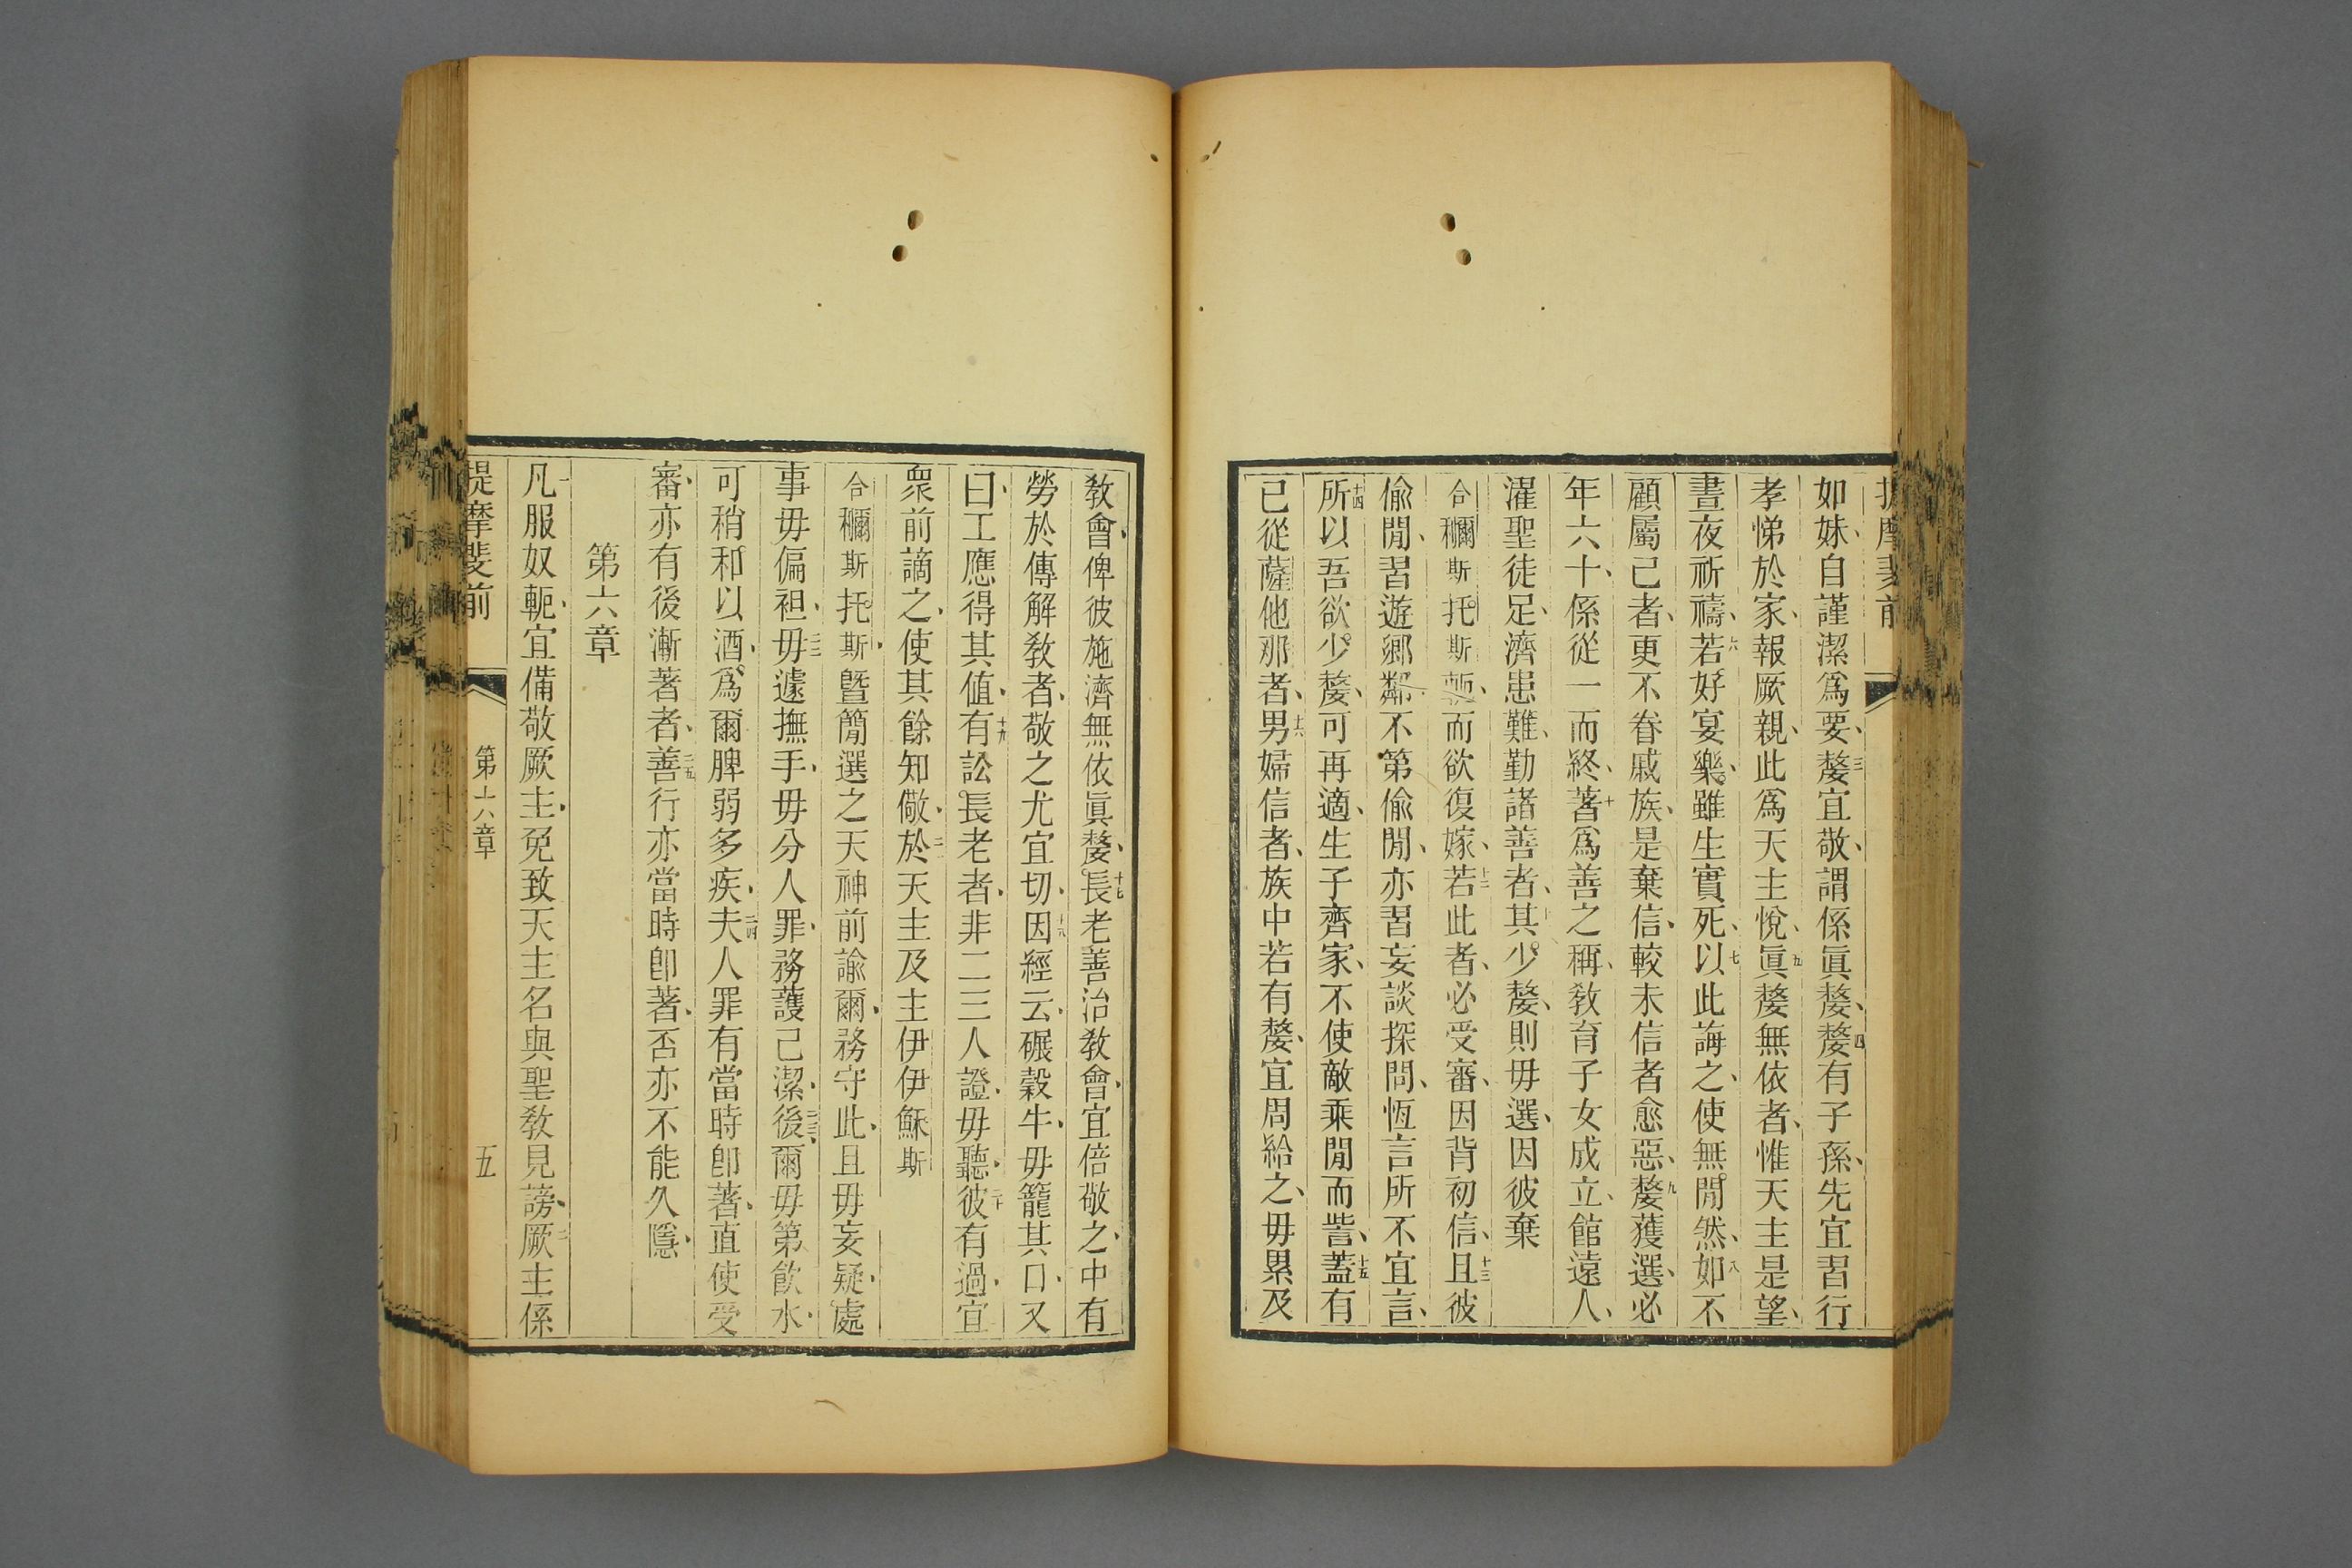 如妹、自謹潔爲要、三嫠宜敬、謂係眞嫠、四嫠有子孫、先宜習行
孝悌於家、報厥親、此爲天主悅、五眞嫠無依者、惟天主是望、
晝夜祈禱、六若好宴樂、雖生實死、七以此誨之、使無閒然、八如不
顧屬己者、更不眷戚族、是棄信、較未信者愈惡、九嫠獲選、必
年六十、係從一而終、十著爲善之稱、敎育子女成立、館遠人、
濯聖徒足、濟患難、勤諸善者、十一其少嫠、則毋選、因彼棄
合穪斯托斯 而欲復嫁、十二若此者、必受審、因背初信、十三且彼
偸閒、習遊鄉鄰、不第偸閒、亦習妄談探問、恆言所不宜言、
十四所以吾欲少嫠、可再適、生子齊家、不使敵乘閒而訾、十五蓋有
已從薩他那者、十六男婦信者、族中若有嫠、宜周給之、毋累及
敎會、俾彼施濟無依眞嫠、十七長老善治敎會、宜倍敬之、中有
勞於傳解敎者、敬之尤宜切、十八因經云、碾穀牛、毋籠其口、又
曰、工應得其值、十九有訟長老者、非二三人證、毋聽、二十彼有過、宜
眾前謫之、使其餘知儆、二一於天主及主伊伊穌斯
合穪斯托斯、曁簡選之天神前諭爾、務守此、且毋妄疑、處
事毋偏袒、二二毋遽撫手、毋分人罪、務護己潔、二三後爾毋第飮水、
可稍和以酒、爲爾脾弱多疾、二四夫人罪有當時卽著、直使受
審、亦有後漸著者、二五善行亦當時卽著、否亦不能久隱、
第六章
一凡服奴軛、宜備敬厥主、免致天主名與聖敎見謗、二厥主係
提摩斐前
第六章
五